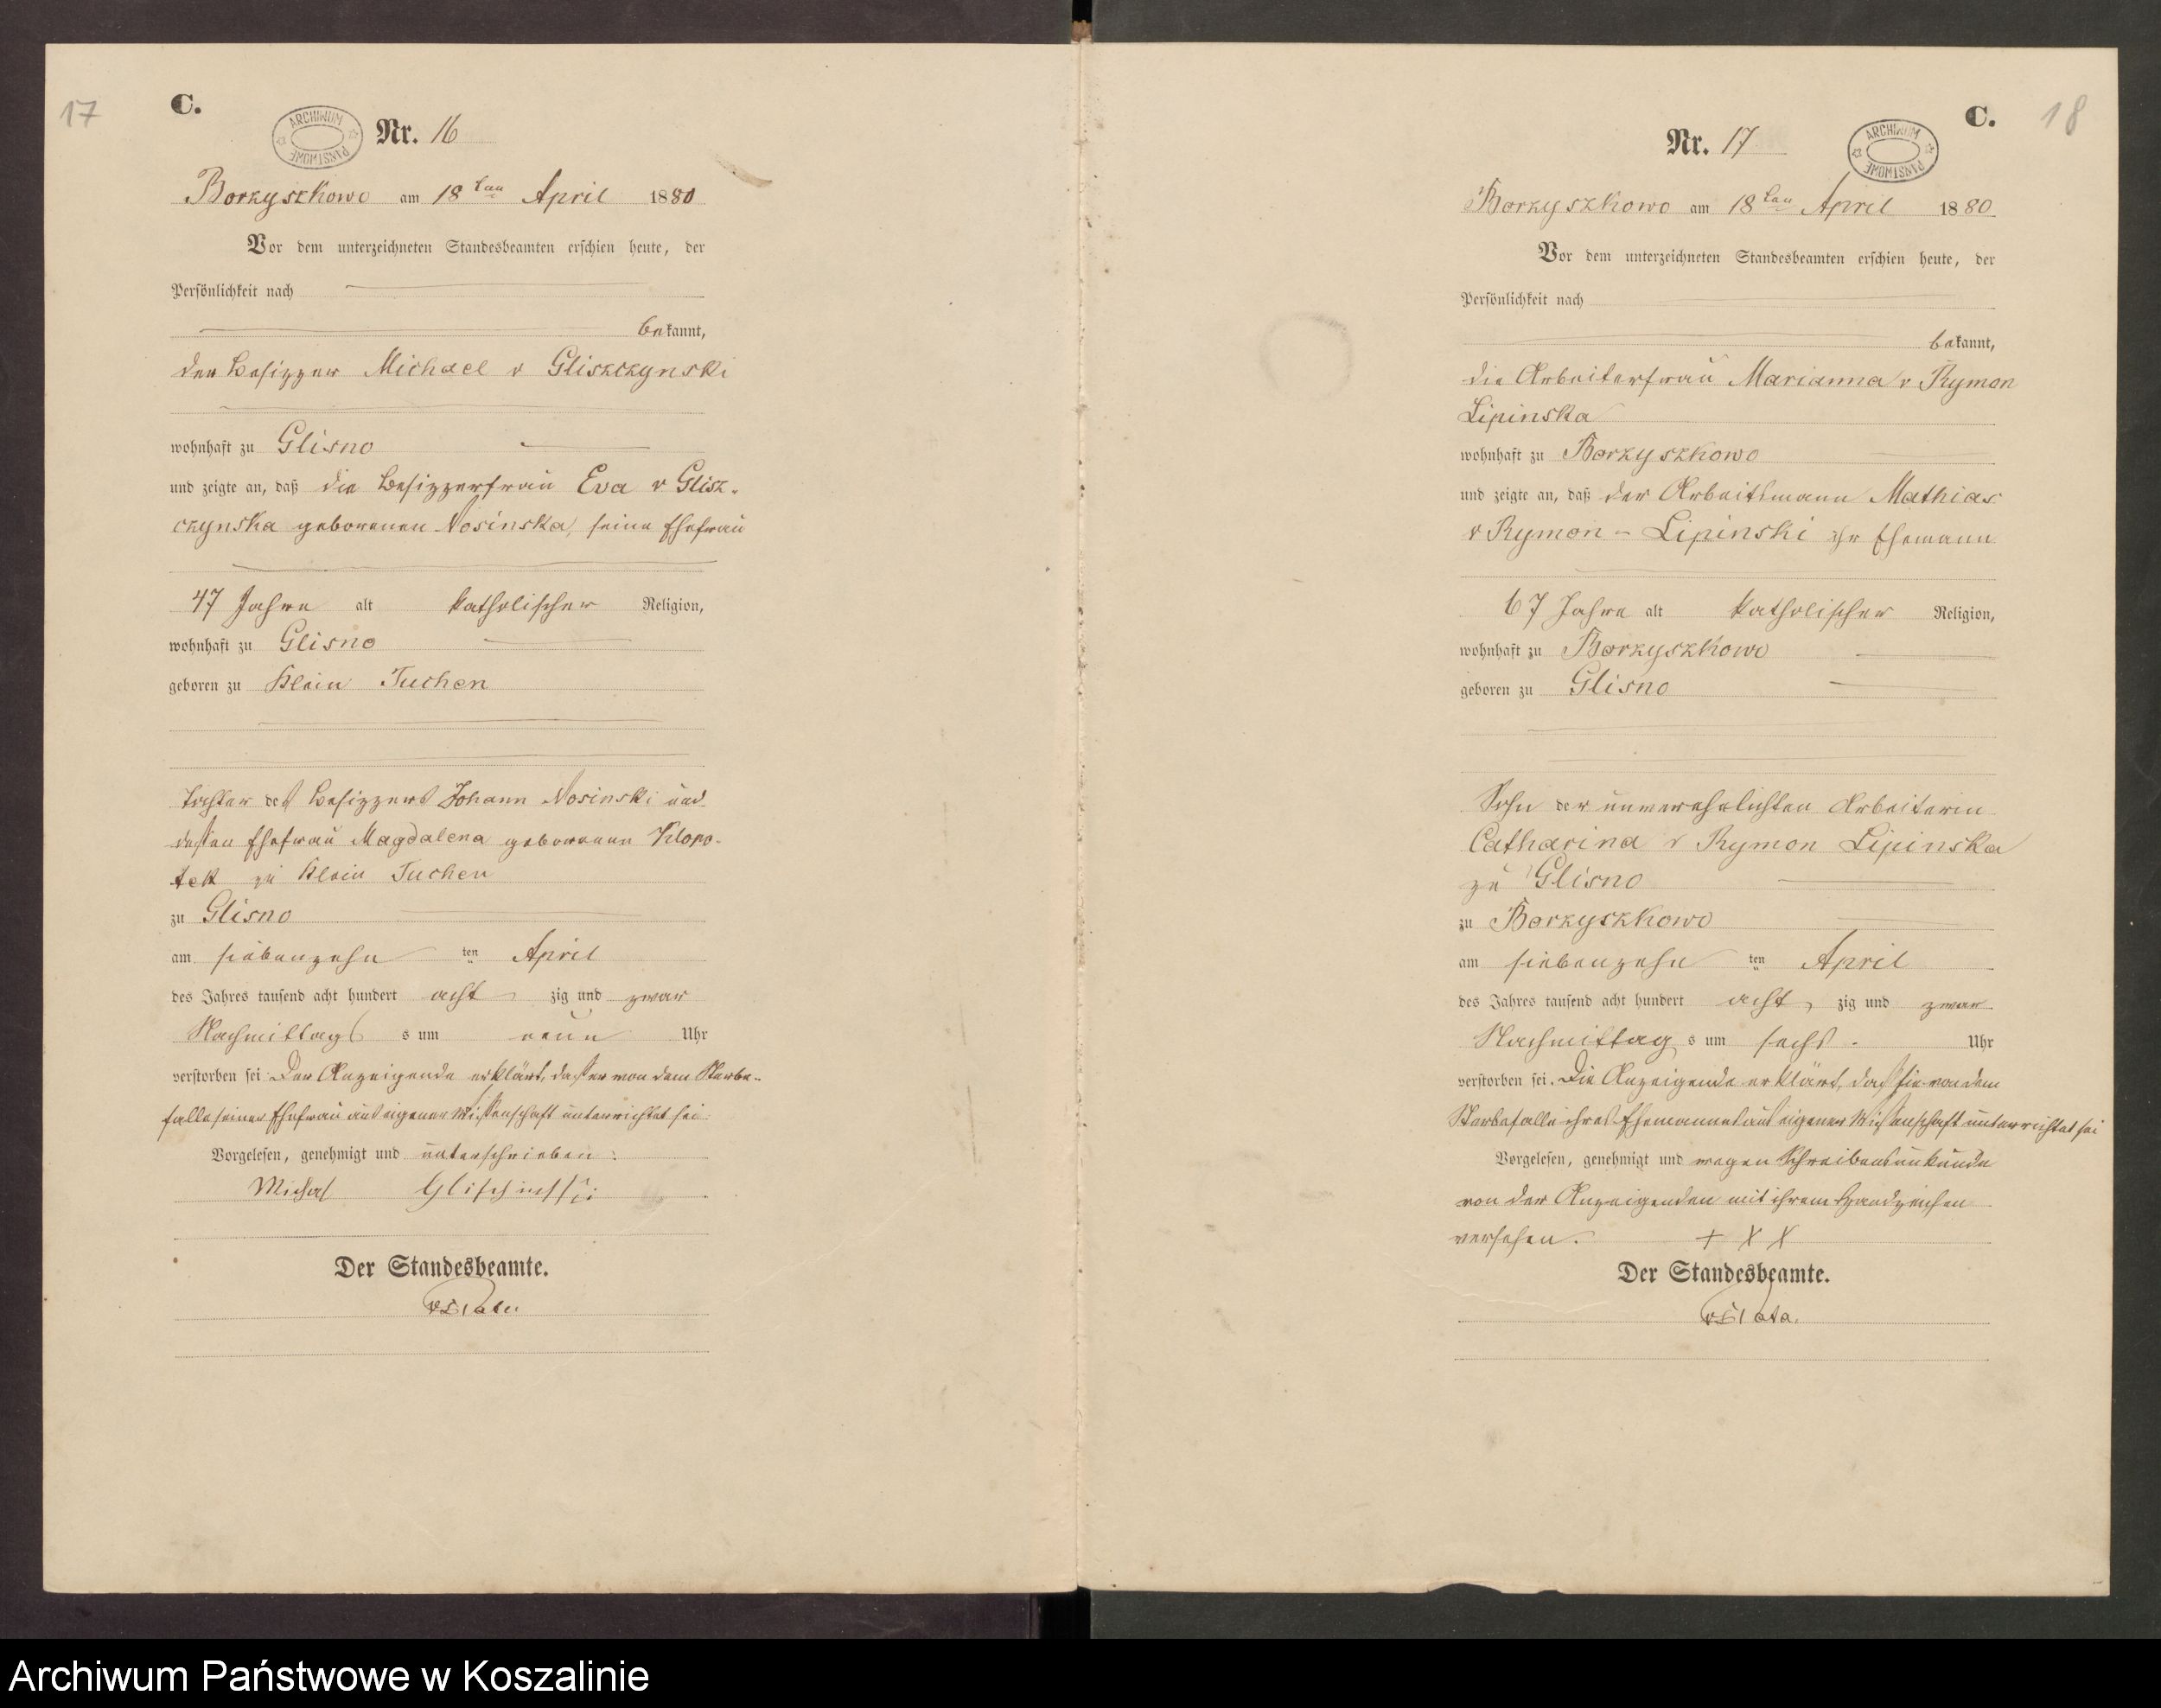 17
C.
ARCHIWUM PAŃSTWOWE
Nr. 16
Borzyszkowo am 18ten April 1880
Vor dem unterzeichneten Standesbeamten erschien heute, der
Persönlichkeit nach
bekannt,
der Besizzer Michael v Gliszczynski
wohnhaft zu Glisno
und zeigte an, daß die Besizzerfrau Eva v Glisz-
czynska geborenen Nosinska, seine Ehefrau
47 Jahre alt katholischer Religion,
wohnhaft zu Glisno
geboren zu Klein Tuchen
Tochter des Besizzers Johann Nosinski und
dessen Ehefrau Magdalena geborenen Klopo-
tek zu Klein Tuchen
zu Glisno
am siebenzehn ten April
des Jahres tausend acht hundert acht zig und zwar
Nachmittags s um neun Uhr
verstorben sei. Der Anzeigende erklärt, dass er von dem Sterbe-
falle seiner Ehefrau aus eigener Wissenschaft unterrichtet sei.
Vorgelesen, genehmigt und unterschrieben:
Michal
Der Standesbeamte.
18
C.
Nr. 17
ARCHIWUM PAŃSTWOWE
Borzyszkowo am 18ten April 1880
Vor dem unterzeichneten Standesbeamten erschien heute, der
Persönlichkeit nach
bekannt,
die Arbeiterfrau Marianna v Rymon
Lipinska
wohnhaft zu Borzyszkowo
und zeigte an, daß der Arbeitsmann Mathias
v Rymon - Lipinski ihr Ehemann
67 Jahre alt katholischer Religion,
wohnhaft zu Borzyszkowo
geboren zu Glisno
Sohn der unverehelichten Arbeiterin
Catharina v Rymon Lipinska
zu Glisno
zu Borzyszkowo
am siebenzehn ten April
des Jahres tausend acht hundert acht zig und zwar
Nachmittag s um sechs Uhr
verstorben sei. Die Anzeigende erklärt, dass sie von dem
Sterbefalle ihres Ehemannes aus eigener Wissenschaft unterrichtet sei
Vorgelesen, genehmigt und wegen Schreibensunkunde
von der Anzeigenden mit ihrem Handzeichen
versehen. + X X
Der Standesbeamte.
Archiwum Państwowe w Koszalinie